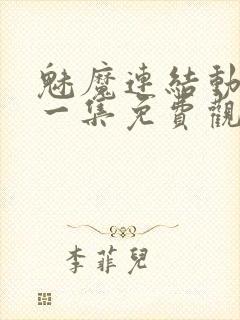 魅魔連結動
一集免費觀
李菲兒